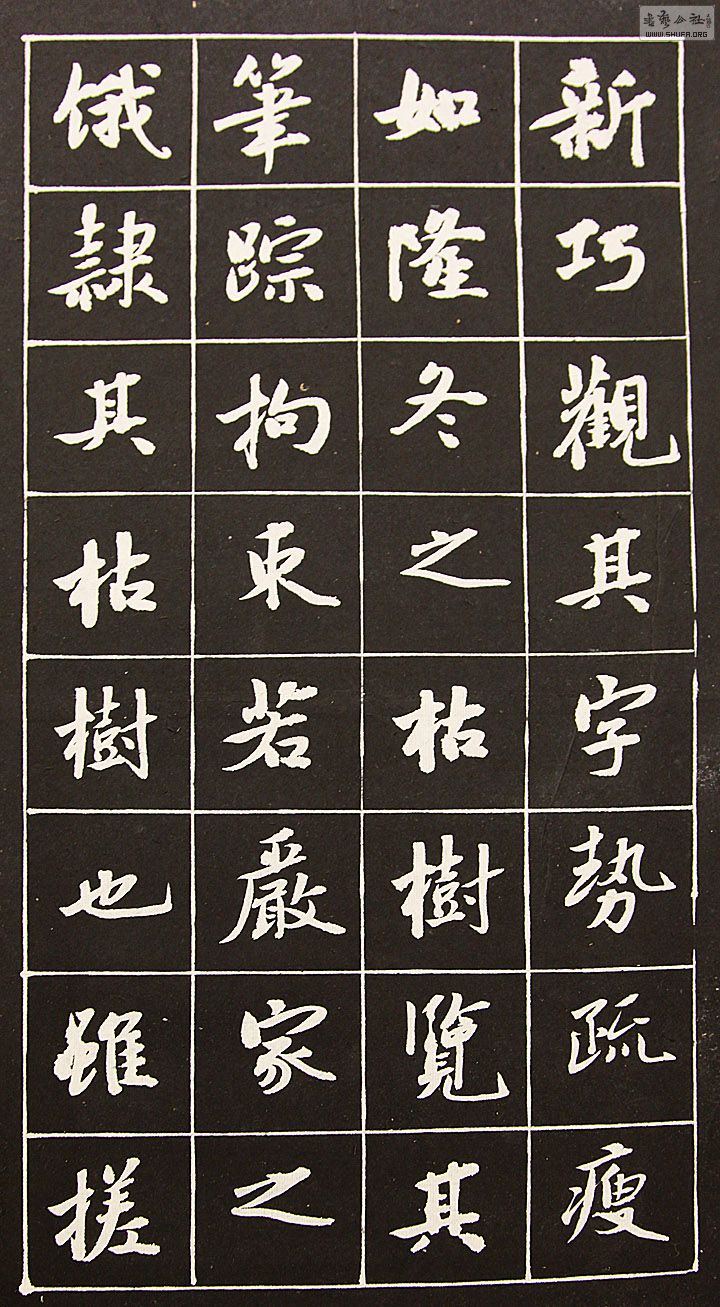 新巧觀其字勢疏瘦
如隆冬之枯樹覽其
筆踪拘束若嚴家之
餓隸其枯樹也雖槎
书艺公社
WWW.SHUFA.ORG